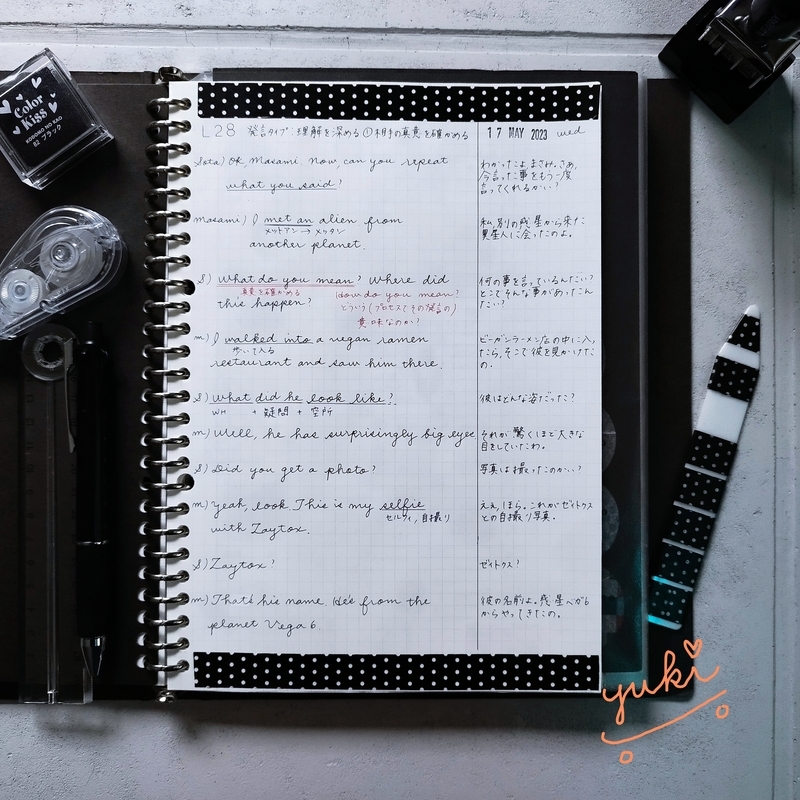 Color
Kiss
KODOMO NO KAO
82 ブラック
L28 発言タイプ:理解を深める ①相手の真意を確かめる
17 MAY 2023 wed
Sota) Ok, Masami. Now, can you repeat
what you said?
わかったよ、まさみ。さあ、
今言った事をもう一度
言ってくれるかい?
Masami) I met an alien from
メットアン→メッタン
another planet.
私、別の惑星から来た
異星人に会ったのよ。
S) What do you mean? Where did
真意を確かめる
this happen?
How do you mean?
どういう(プロセスでその発言の)
意味なのか?
何の事を言っているんだい?
どこでそんな事があったん
だい?
m) I walked into a vegan ramen
歩いて入る
restaurant and saw him there.
ビーガンラーメン店の中に入っ
たら、そこで彼を見かけたの
。
S) What did he look like?
WH + 疑問 + 空所
彼はどんな姿だった?
m) Well, he has surprisingly big eyes
それが驚くほど大きな
目をしていたわ。
S) Did you get a photo?
写真は撮ったのかい?
m) Yeah, look. This is my selfie
セルフィ, 自撮り
with Zaytox.
ええ、ほら。これがゼイトクス
との自撮り写真。
S) Zaytox?
ゼイトクス?
m) That's his name. He's from the
planet Vega 6.
彼の名前よ。惑星ベガ6
からやってきたの。
yuki